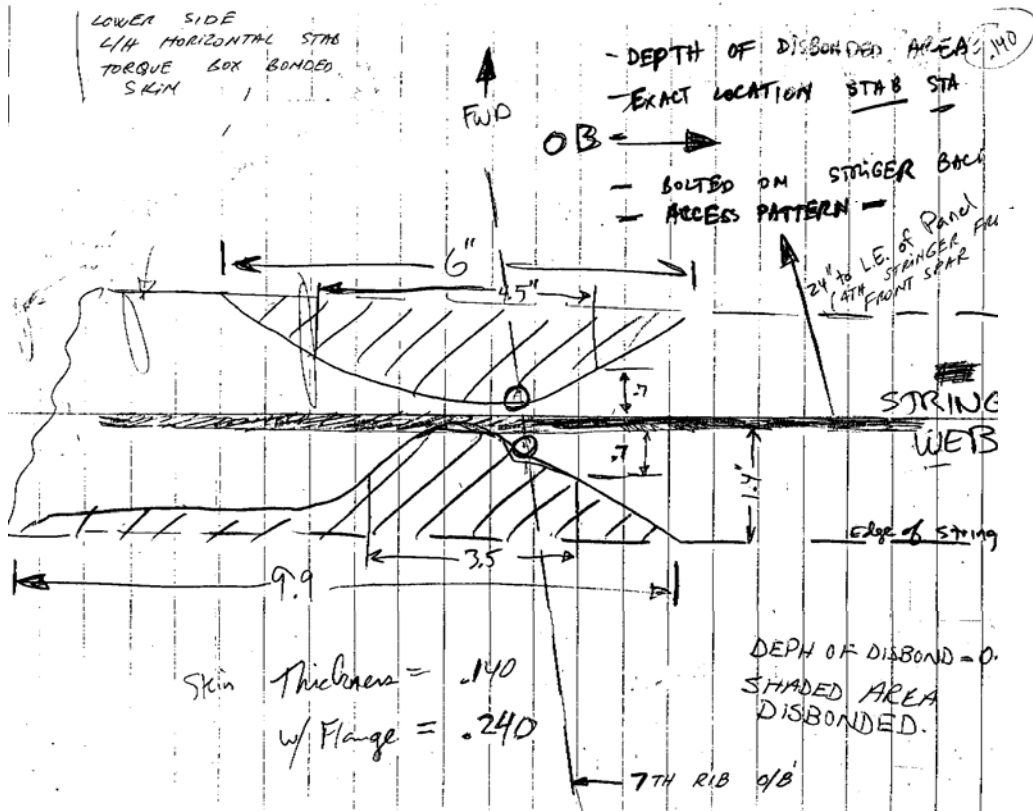 LOWER SIDE
L/H HORIZONTAL STAB
TORQUE BOX BONDED
SKIN
FWD
- DEPTH OF DISBONDED AREA = .140
- EXACT LOCATION STAB STA
OB
- BOLTED ON STRINGER
- ACCESS PATTERN -
24" to L.E. of Panel
STRINGER
FRONT SPAR
6"
4.5"
.7
STRING
WEB
.7
1.4"
Edge of String
3.5
9.9
Skin Thickness = .140
w/ Flange = .240
DEPH OF DISBOND = 0.
SHADED AREA
DISBONDED.
7TH RIB O/B